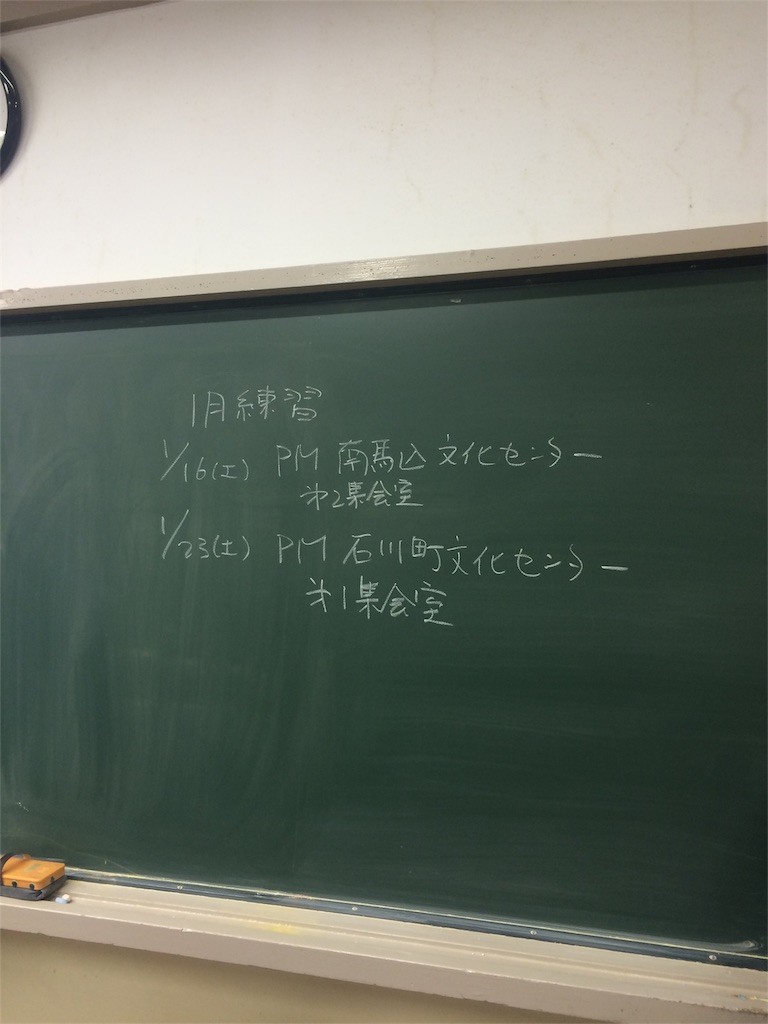 1月練習
1/16(土) PM 南馬込文化センター
第2集会室
1/23(土) PM 石川町文化センター
第1集会室